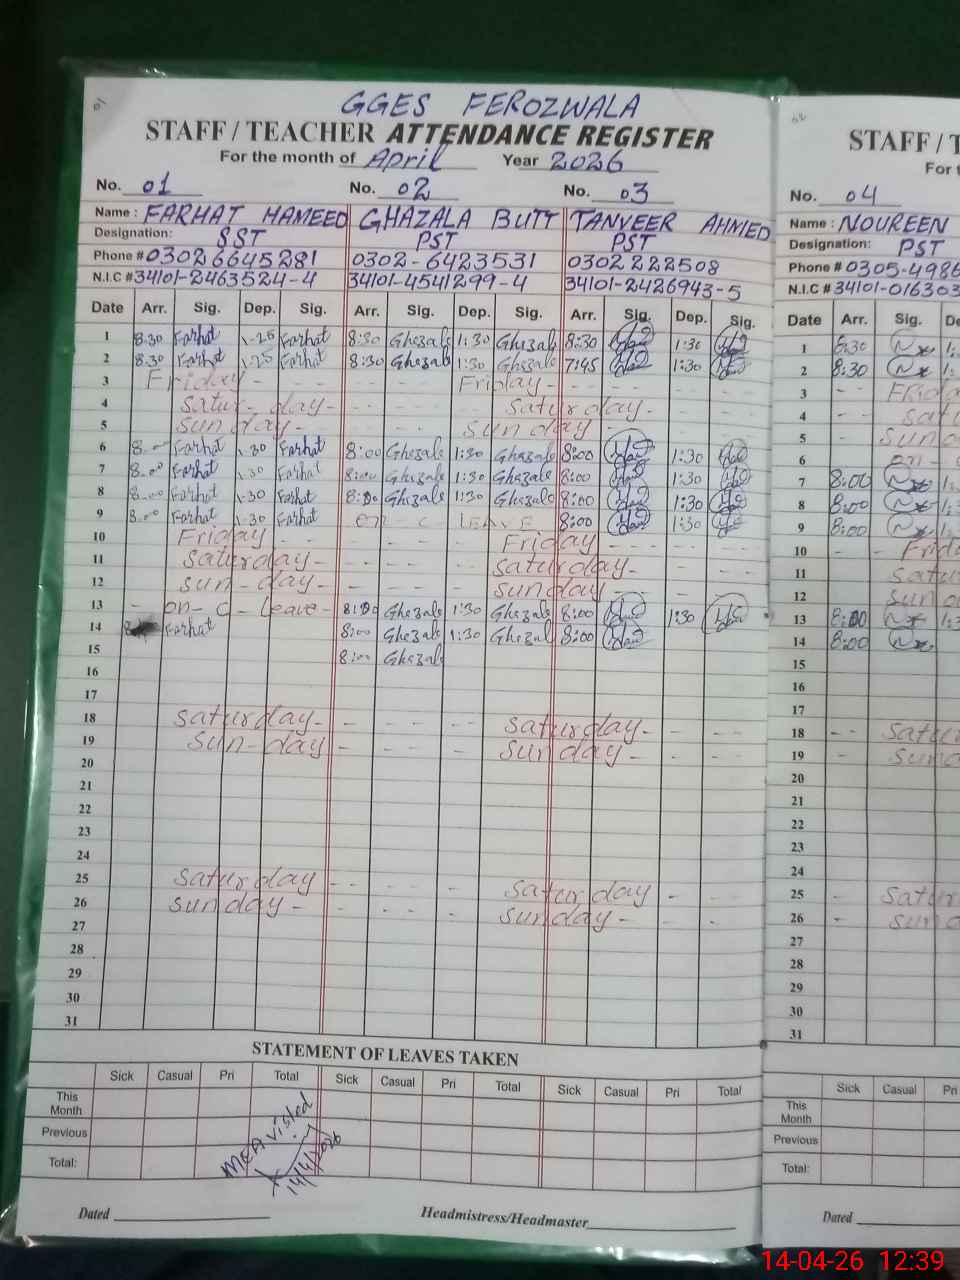 01
GGES FEROZWALA
STAFF / TEACHER ATTENDANCE REGISTER
For the month of April Year 2026
No. 01 No. 02 No. 03
Name : FARHAT HAMEED GHAZALA BUTT TANVEER AHMED
Designation: SST PST PST
Phone # 03026645281 0302-6423531 0302222508
N.I.C # 34101-2463524-4 34101-4541299-4 34101-2426943-5
Date Arr. Sig. Dep. Sig. Arr. Sig. Dep. Sig. Arr. Sig. Dep. Sig.
1 8.30 Farhat 1-25 Farhat 8:30 Ghazala 1:30 Ghazala 8:30 1:30
2 8.30 Farhat 1-25 Farhat 8:30 Ghazala 1:30 Ghazala 7:45 1:30
3 Friday - - - - Friday - - - -
4 Satur-day - - - - Saturday -
5 Sunday - - - - Sunday - - - -
6 8.00 Farhat 1.30 Farhat 8:00 Ghazala 1:30 Ghazala 8:00 1:30
7 8.00 Farhat 1.30 Farhat 8:00 Ghazala 1:30 Ghazala 8:00 1:30
8 8.00 Farhat 1.30 Farhat 8:00 Ghazala 1:30 Ghazala 8:00 1:30
9 8.00 Farhat 1.30 Farhat on - C - LEAVE 8:00 1:30
10 Friday - - - - Friday - - - -
11 Saturday - - - - Saturday - - - -
12 Sun-day - - - - Sunday - - - -
13 - on - C - Leave - 8:00 Ghazala 1:30 Ghazala 8:00 1:30
14 Farhat 8:00 Ghazala 1:30 Ghazala 8:00
15 8:00 Ghazala
16
17
18 Saturday - - - - Saturday - - -
19 Sun-day - - - - Sunday - - -
20
21
22
23
24
25 Saturday - - - - Saturday - -
26 Sunday - - - - Sunday - - -
27
28
29
30
31
STATEMENT OF LEAVES TAKEN
Sick Casual Pri Total Sick Casual Pri Total Sick Casual Pri Total
This Month
Previous
Total:
MEA visited
14/4/2026
Dated Headmistress/Headmaster
STAFF / T
For t
No. 04
Name : NOUREEN
Designation: PST
Phone # 0305-4986
N.I.C # 34101-016303
Date Arr. Sig. De
1 8:30 1:
2 8:30 1:
3 - - Frida
4 - - Satu
5 - Sund
6 on -
7 8:00 1:
8 8:00 1:
9 8:00 1:
10 - - Frid
11 Satu
12 Sund
13 8:00 1:3
14 8:00
15
16
17
18 - - - Satu
19 - - Sund
20
21
22
23
24
25 - Satu
26 - Sund
27
28
29
30
31
Sick Casual Pri
This Month
Previous
Total:
Dated
14-04-26 12:39